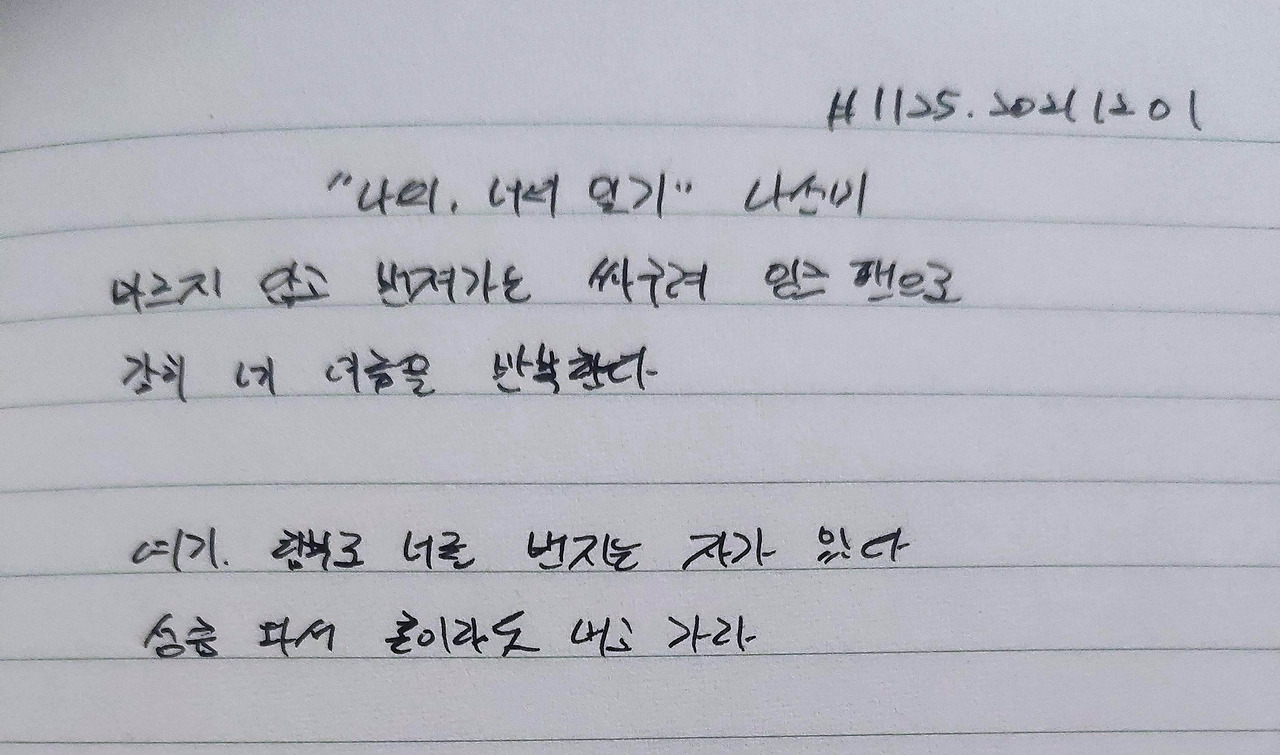 #1125. 20211201
"나의, 너서 일기" 나선미
마르지 않고 번져가는 싸구려 잉크 펜으로
감히 네 이름을 반복한다

여기. 함부로 너를 번지는 자가 있다
성큼 와서 혼이라도 내고 가라